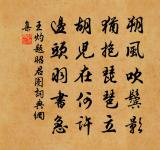 朔風吹鬢影
猶抱琵琶立
胡兒在何許
邊頭羽書急
王灼題昭君圖詞典網
集